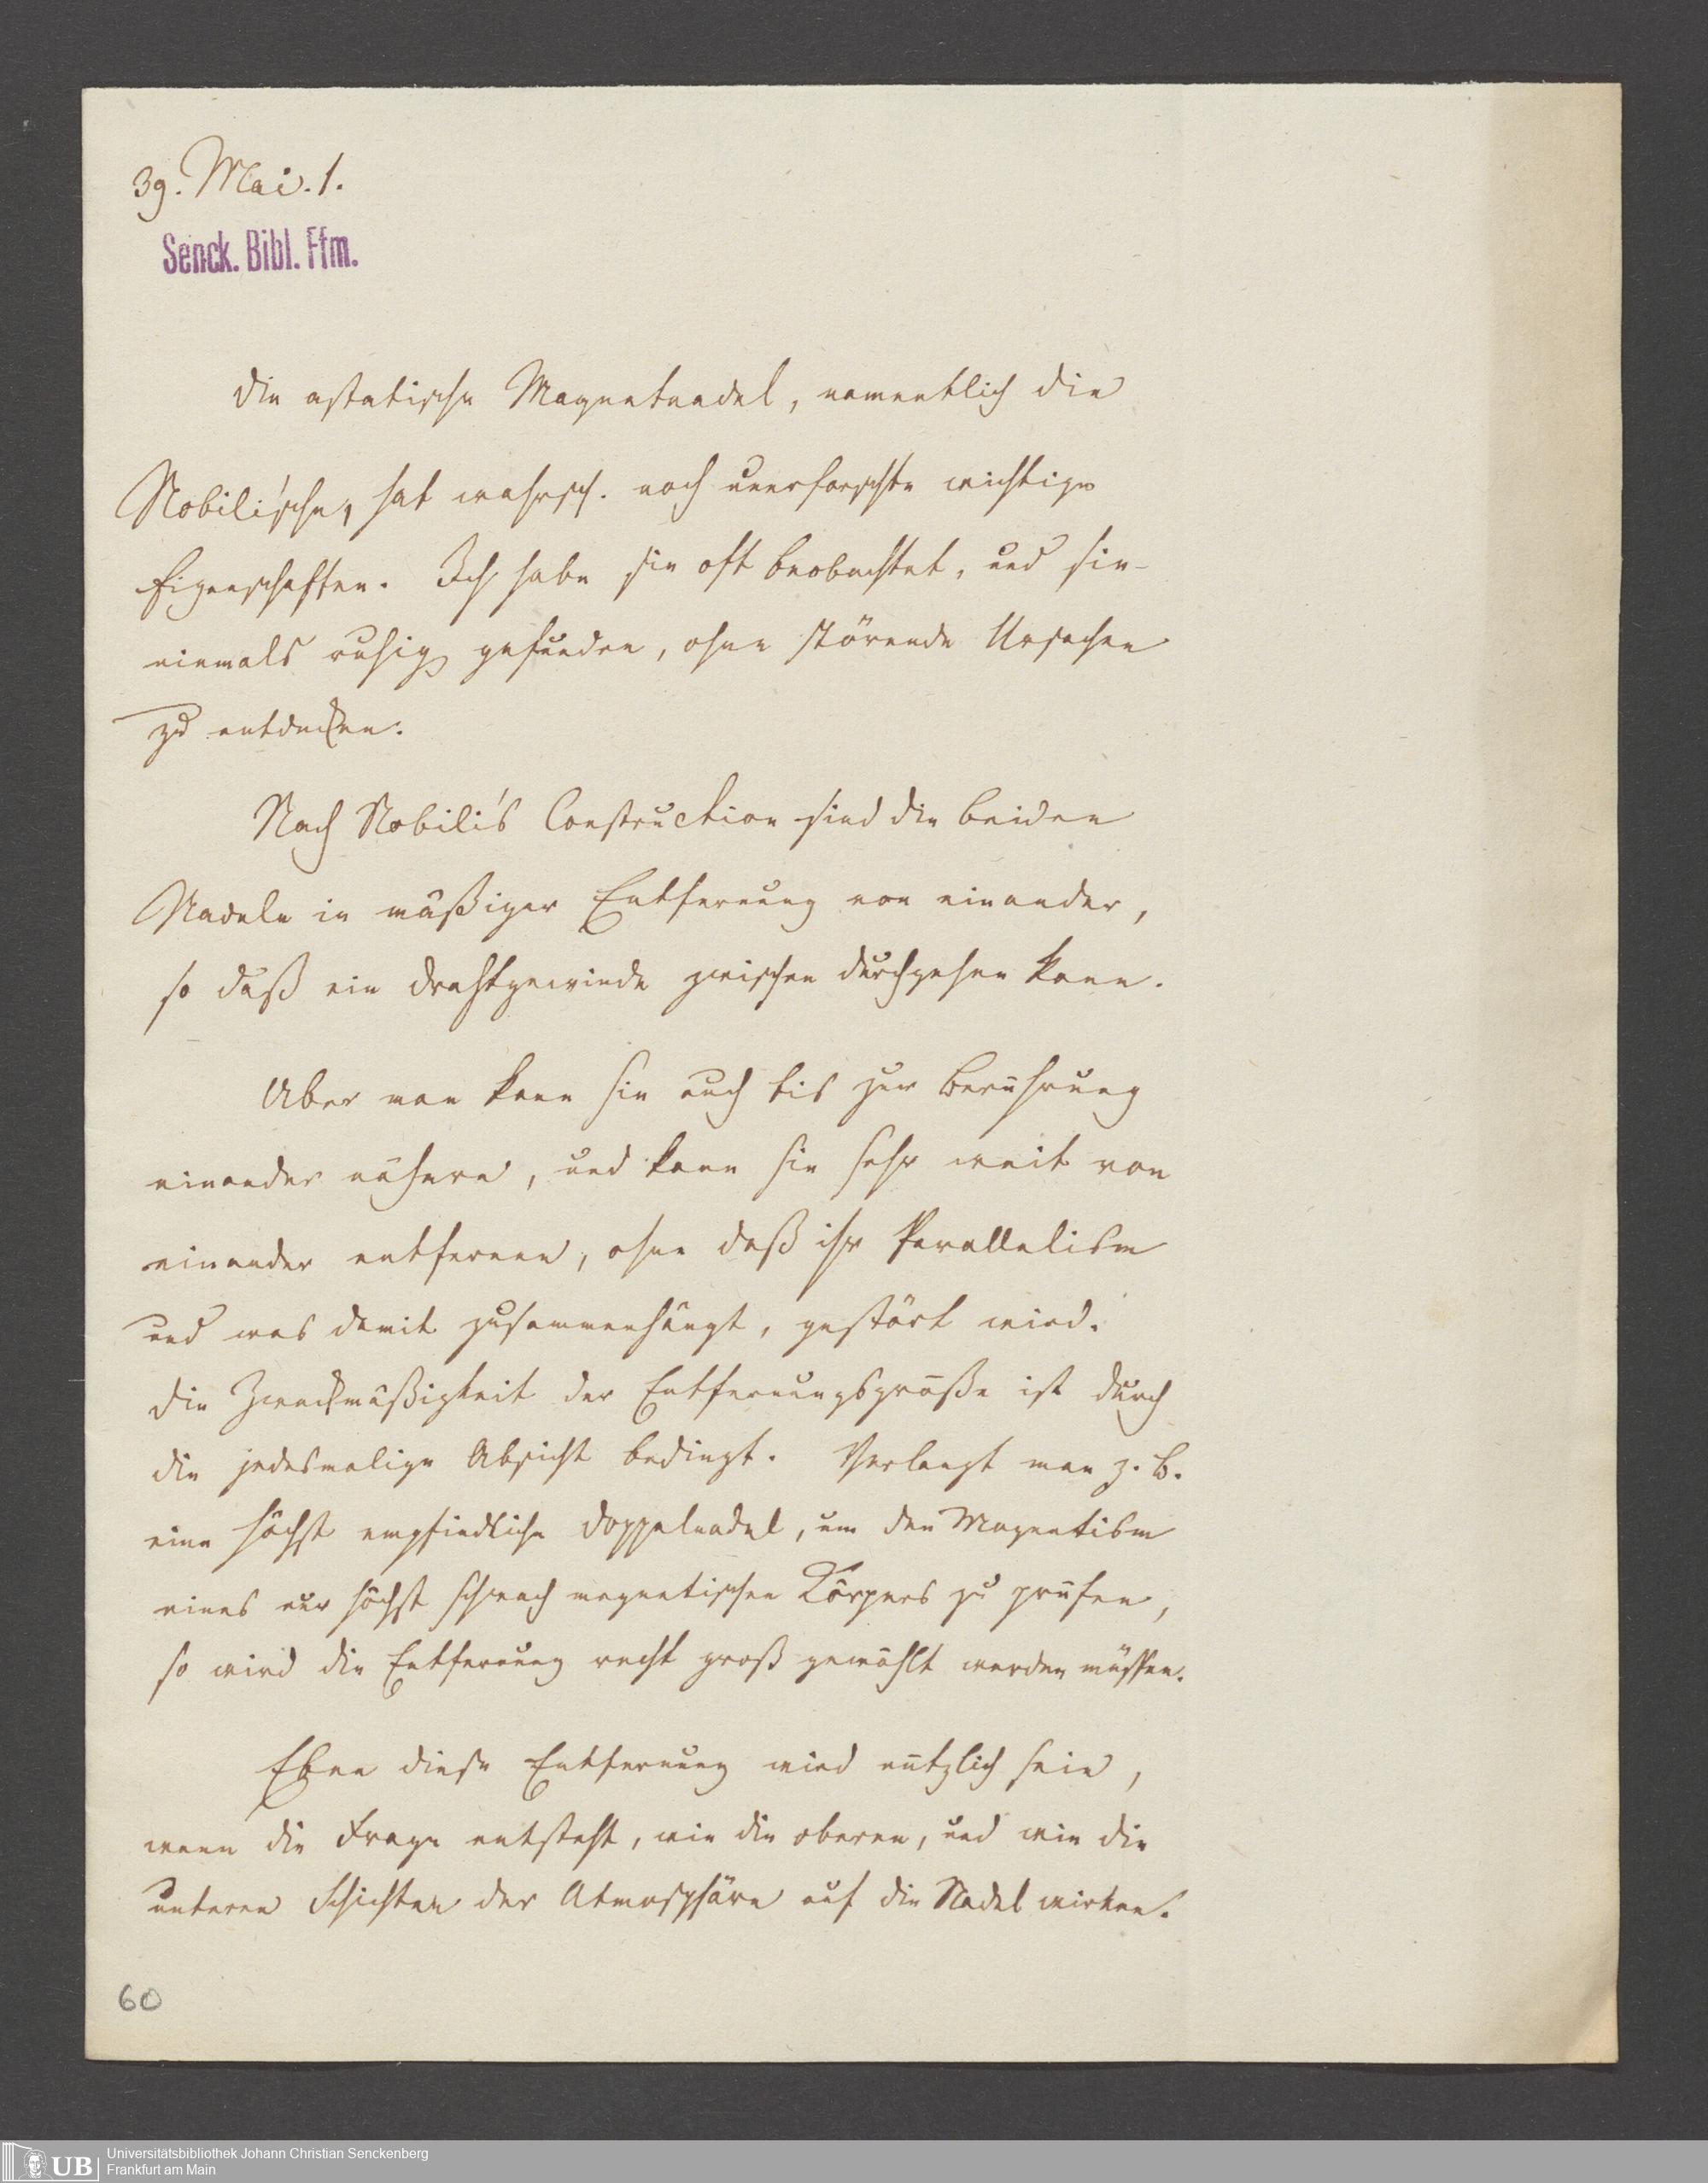 39. Mai. 1.
Senck. Bibl. Ffm.
Die astatische Magnetnadel, namentlich die
Nobili'sche, hat wahrsch. noch unerforschte wichtige
Eigenschaften. Ich habe sie oft beobachtet, und sie
niemals ruhig gefunden, ohne störende Ursachen
zu entdecken.
Nach Nobili's Construction sind die beiden
Nadeln in mäßiger Entfernung von einander,
so daß ein Drahtgewinde zwischen durchgehen kann.
Aber man kann sie auch bis zur Berührung
einander nähern, und kann sie sehr weit von
einander entfernen, ohne daß ihr Parallelism
und was damit zusammenhängt, gestört wird.
Die Zweckmäßigkeit der Entfernungsgröße ist durch
die jedesmalige Absicht bedingt. Verlangt man z. B.
eine höchst empfindliche Doppelnadel, um den Magnetism
eines nur höchst schwach magnetischen Körpers zu prüfen,
so wird die Entfernung recht groß gewählt werden müssen.
Eben diese Entfernung wird nützlich sein,
wenn die Frage entsteht, wie die oberen, und wie die
unteren Schichten der Atmosphäre auf die Nadel wirken.
60
UB
Universitätsbibliothek Johann Christian Senckenberg
Frankfurt am Main